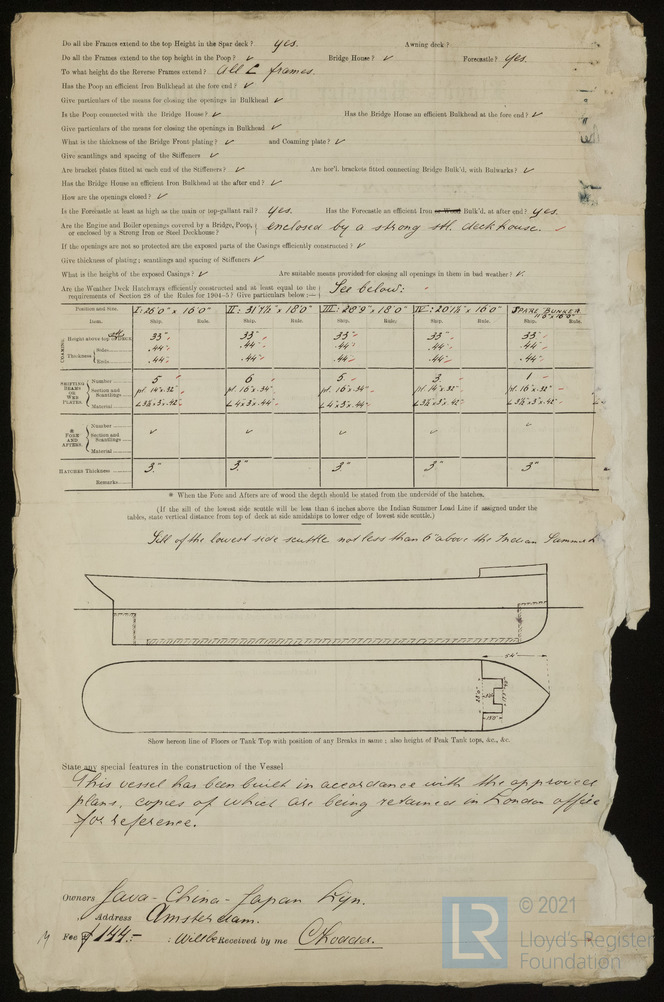 Do all the Frames extend to the top Height in the Spar deck? yes. Awning deck?
Do all the Frames extend to the top height in the Poop? ✓ Bridge House? ✓ Forecastle? yes.
To what height do the Reverse Frames extend? all L frames.
Has the Poop an efficient Iron Bulkhead at the fore end? ✓
Give particulars of the means for closing the openings in Bulkhead ✓
Is the Poop connected with the Bridge House? ✓ Has the Bridge House an efficient Bulkhead at the fore end? ✓
Give particulars of the means for closing the openings in Bulkhead ✓
What is the thickness of the Bridge Front plating? ✓ and Coaming plate? ✓
Give scantlings and spacing of the Stiffeners ✓
Are bracket plates fitted at each end of the Stiffeners? ✓ Are hor'l. brackets fitted connecting Bridge Bulk'd, with Bulwarks? ✓
Has the Bridge House an efficient Iron Bulkhead at the after end? ✓
How are the openings closed? ✓
Is the Forecastle at least as high as the main or top-gallant rail? yes. Has the Forecastle an efficient Iron or Wood Bulk'd. at after end? yes.
Are the Engine and Boiler openings covered by a Bridge, Poop,
or enclosed by a Strong Iron or Steel Deckhouse? enclosed by a strong stl. deckhouse.
If the openings are not so protected are the exposed parts of the Casings efficiently constructed? ✓
Give thickness of plating; scantlings and spacing of Stiffeners ✓
What is the height of the exposed Casings? ✓ Are suitable means provided for closing all openings in them in bad weather? ✓
Are the Weather Deck Hatchways efficiently constructed and at least equal to the
requirements of Section 28 of the Rules for 1904-5? Give particulars below:— See below:
Position and Size. I: 26'0" × 16'0" II: 31'7½" × 18'0" III: 28'9" × 18'0" IV: 20'1¼" × 16'0" SPARE BUNKER
Item. Ship. Rule. Ship. Rule. Ship. Rule. Ship. Rule. Ship. Rule.
COAMING Height above top of DECK 33" 33" 33" 33" 33"
Thickness Sides .44" .44" .44" .44" .44"
Ends .44" .44" .44" .44" .44"
SHIFTING BEAMS OR WEB PLATES Number 5 6 5 3 1
Section and Scantlings pl. 14"x.32" pl. 16"x.34" pl. 16"x.34" pl. 14"x.32" pl. 16"x.32"
Material L 3½x3x.42" L 4x3x.44" L 4x3x.44" L 3½x3x.42" L 3½x3x.42"
* FORE AND AFTERS. Number
Section and Scantlings ✓ ✓ ✓ ✓ ✓
Material
HATCHES Thickness 3" 3" 3" 3" 3"
Remarks
* When the Fore and Afters are of wood the depth should be stated from the underside of the hatches.
(If the sill of the lowest side scuttle will be less than 6 inches above the Indian Summer Load Line if assigned under the
tables, state vertical distance from top of deck at side amidships to lower edge of lowest side scuttle.)
Sill of the lowest side scuttle not less than 6" above the Indian Summer
54'
Show hereon line of Floors or Tank Top with position of any Breaks in same; also height of Peak Tank tops, &c., &c.
State any special features in the construction of the Vessel
This vessel has been built in accordance with the approved
plans, copies of which are being retained in London office
for reference.
Owners Java-China-Japan Lijn.
Address Amsterdam.
Fee f 144:- : Will be Received by me
© 2021
LR
Lloyd's Register
Foundation